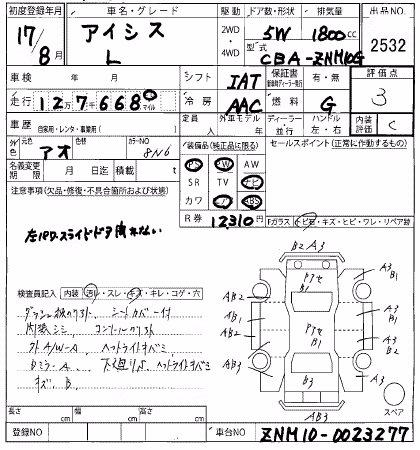 初度登録年月 車名・グレード 駆動 ドア数・形状 排気量 出品NO
17/8月 アイシス L 2WD・4WD 5W 1800cc 2532
型式 CBA-ZNM10G
車検 年 月 シフト IAT 保証書 新車時ディーラー発行 有・無 評価点
走行 12万7千668⓪マイル 冷房 AAC 燃料 G 3
車歴 自家用・レンタ・事業用( ) 定員 人 外車モデル 年 ディーラー・並行 ハンドル 左・右 内装評価 C
外色 元色 アオ 色替 カラーNO 8N6
装備品(純正品に限る) セールスポイント(正常に作動するもの)
名義変更期限 月 日 積載 t
PS PW AW
SR TV ナビ
カワ エアB ABS
注意事項(欠品・修復・不具合箇所および状態)
R券 12,310円
Fガラス トビ石・キズ・ヒビ・ワレ・リペア跡
左PWスライドドア
検査員記入 内装 汚レ・スレ・キズ・キレ・コゲ・穴
シートカバー付
内装シミ
フトA/W-A ヘッドライトキバミ
Dミラー-A 下廻りS ヘッドライトキバミ
キズ B
B2 A3
A3 B1
AB2
AB1
AB2
AB3
B1
B1
B3
A3 B1
A3
AB3
スペア
長さ cm 幅 cm 高さ cm
登録NO 車台NO ZNM10-0023277